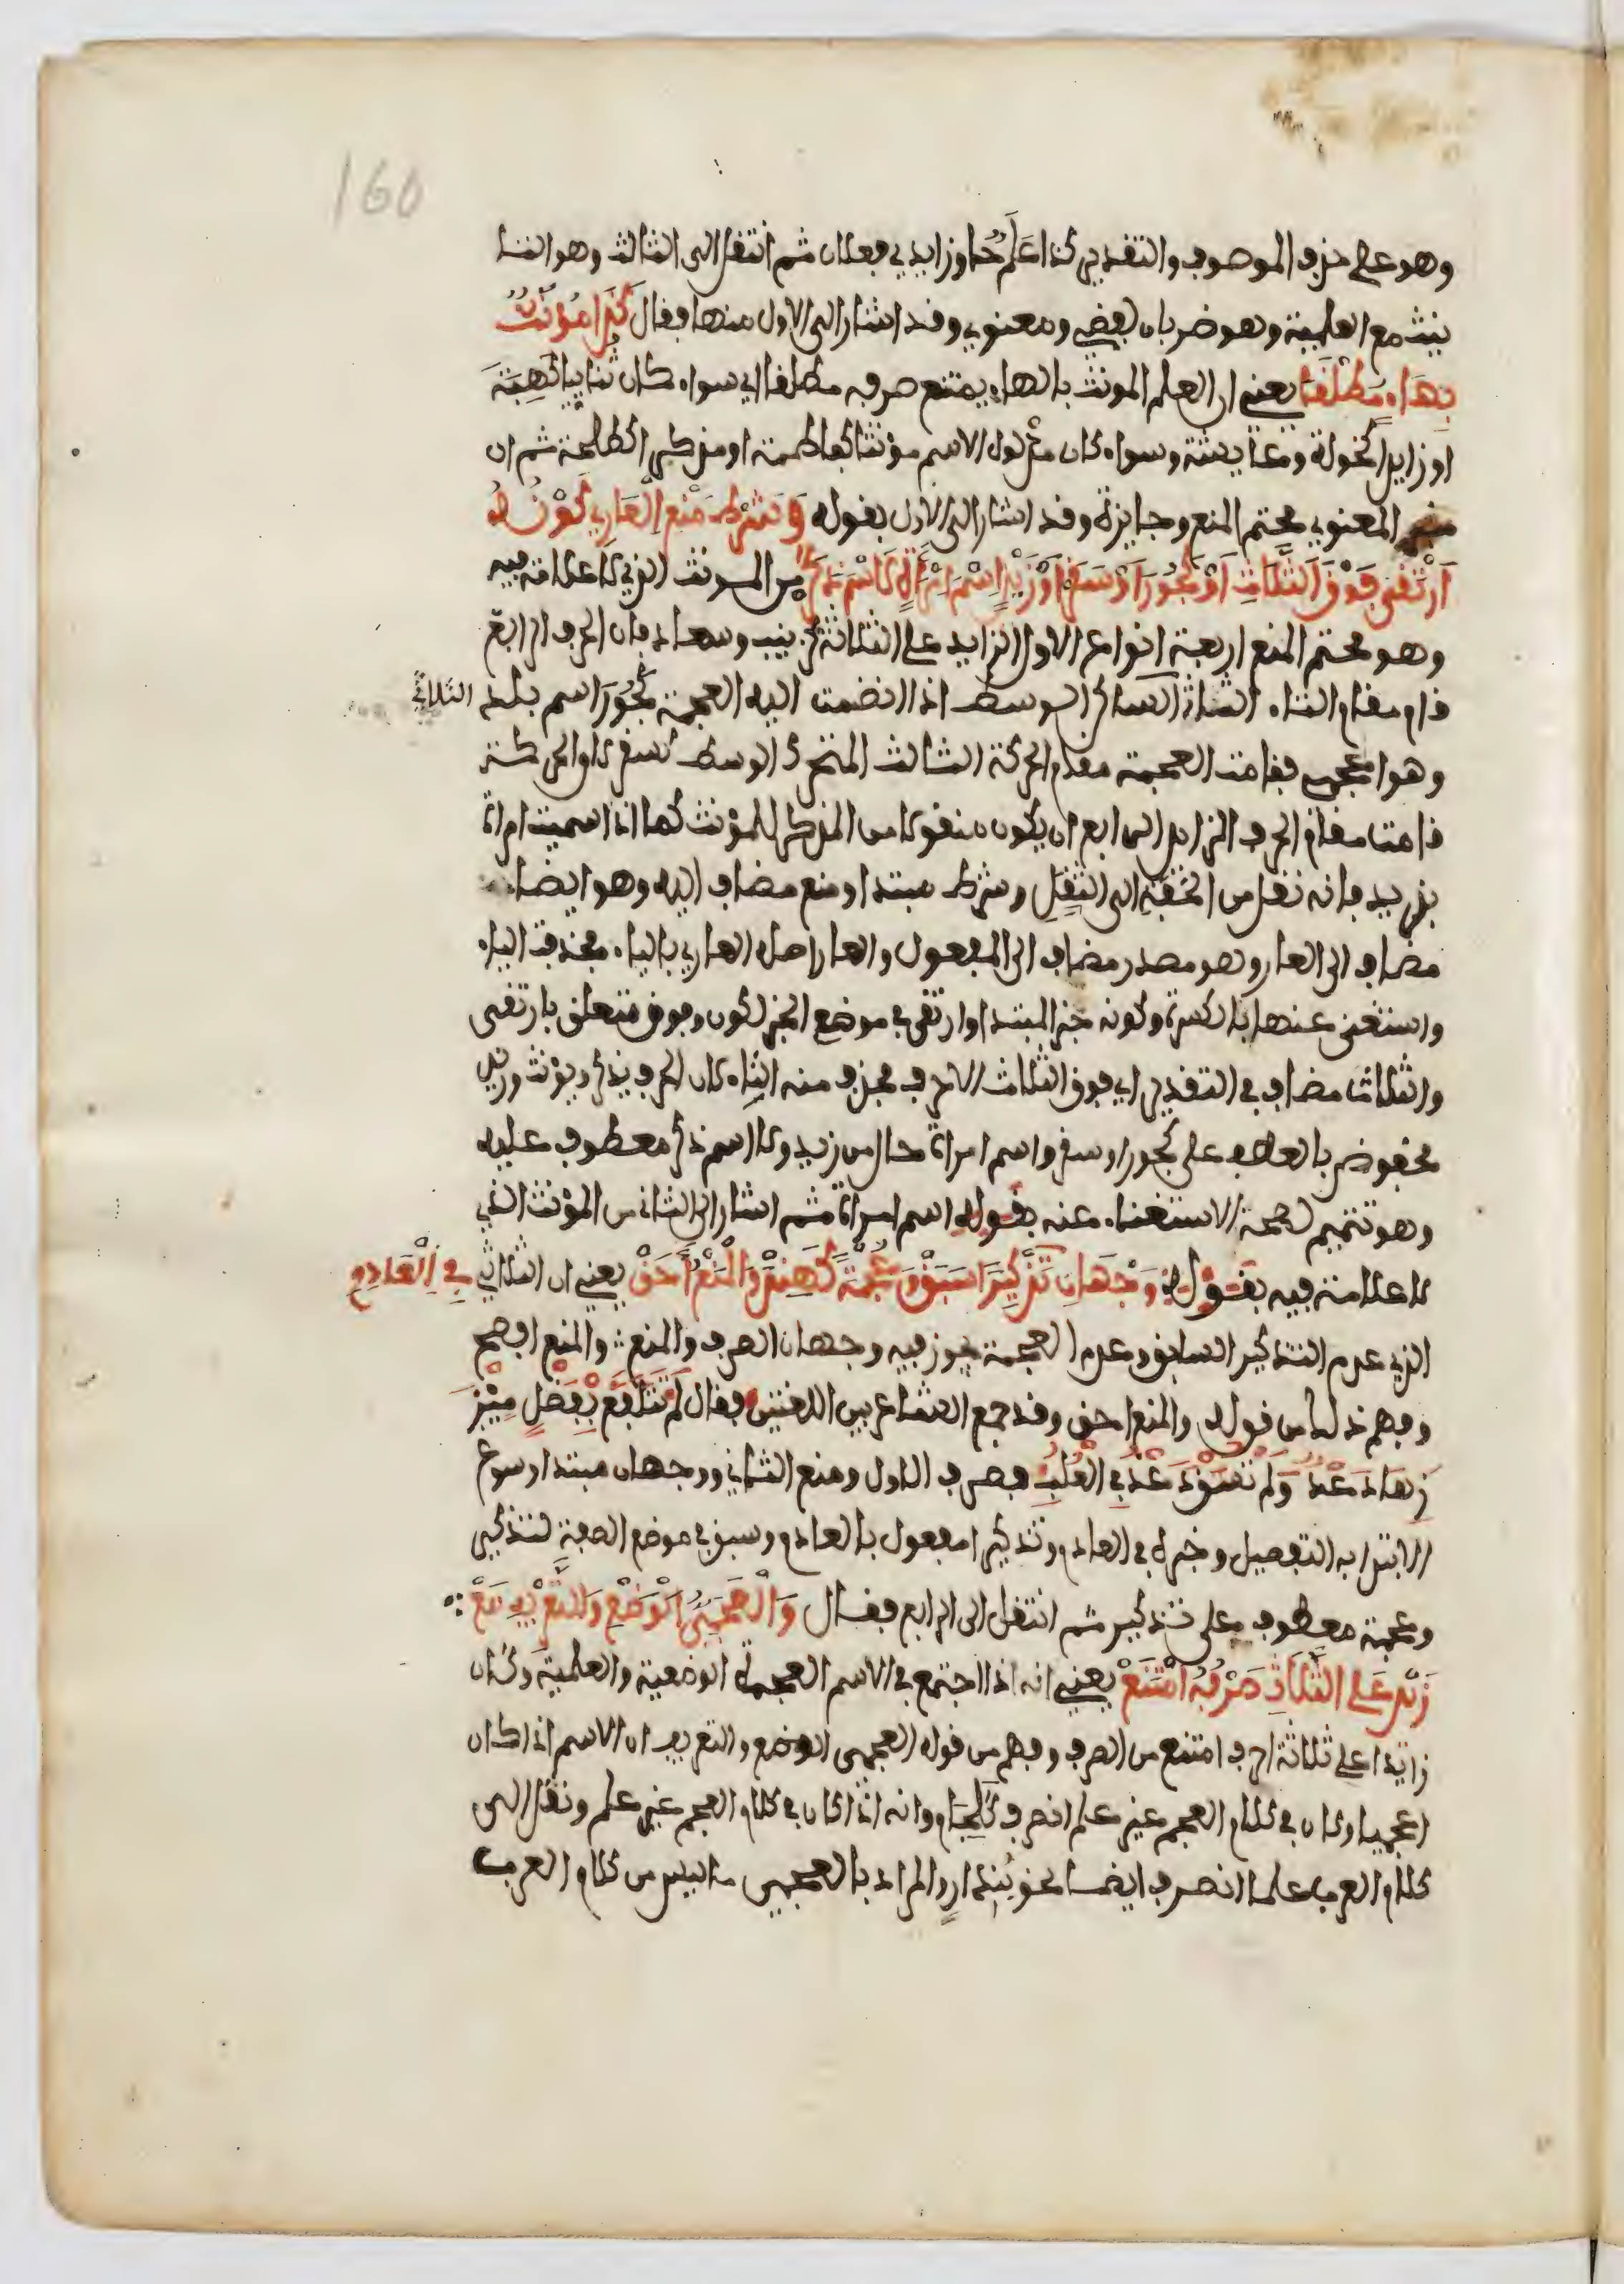 160
وهو على حذف الموصوف والتقدير كذا علم حاو زايدي فعلان ثم انتقل الى الثالث وهو التا
نيث مع العلمية وهو ضربان لفظي ومعنوي وقد اشار الى الاول منهما فقال كَذَا مُؤَنَّثٌ
بِهَاءٍ مُطْلَقَا يعني ان العلم المونث بالهاء يمتنع صرفه مطلقا اي سواء كان ثنائيا كهبة
او زايدا كخولة وعايشة وسواء كان مدلول الاسم مؤنثا كفاطمة او مذكرا كطلحة ثم ان
المعنوي محتم المنع وجايزه وقد اشار الى الاول بقوله وَشَرْطُ مَنْعِ الْعَارِ كَوْنُهُ
ارْتَقَى فَوْقَ الثَّلَاثِ اَوْ كَجُورَ اَوْ سَقَرْ اَوْ زَيْدٍ اسْمَ امْرَأَةٍ لَا اسْمَ ذَكَرْ من المونث الذي لا علامة فيه
وهو محتم المنع اربعة انواع الاول الزايد على الثلاثة كزينب وسعاد فان الحرف الرابع
قام مقام التاء الثاني الساكن الوسط اذا انضمت اليه العجمة كجور اسم بلد الثلاثي
وهو اعجمي فقامت العجمة مقام الحركة الثالث المتحرك الوسط كسقر لان الحركة
قامت مقام الحرف الزايد الرابع ان يكون منقولا من المذكر للمؤنث كما اذا سميت امراة
بزيد فانه نقل من الخفة الى الثقل وشرط مبتدا ومنع مضاف اليه وهو ايضا
مضاف الى العار وهو مصدر مضاف الى المفعول والعار اصله العاري بالياء فحذفت الياء
واستغنى عنها بالكسرة وكونه خبر المبتدا وارتقى في موضع الخبر لكون وفوق متعلق بارتقى
والثلاث مضاف في التقدير اي فوق الثلاث الاحرف فحذف منه التاء لان الحرف يذكر ويؤنث وزيد
مخفوض بالعطف على كجور او سقر واسم امراة حال من زيد ولا اسم ذكر معطوف عليه
وهو تتميم لصحة الاستغناء عنه بقوله اسم امراة ثم اشار الى الثاني من المؤنث الذي
لا علامة فيه بقوله وَجْهَانِ فِي الْعَادِمِ تَذْكِيرًا سَبَقْ وَعُجْمَةً كَهِنْدَ وَالْمَنْعُ اَحَقْ يعني ان الثلاثي
الذي عدم التذكير السابق وعدم العجمة يجوز فيه وجهان الصرف والمنع والمنع افصح
وفهم ذلك من قوله والمنع احق وقد جمع الشاعر بين اللغتين فقال لَمْ تَتَلَفَّعْ بِفَضْلِ مِيْزَ
رِهَا دَعْدٌ وَلَمْ تُسْقَ دَعْدُ فِي الْعُلَبِ فصرف الاول ومنع الثاني ووجهان مبتدا وسوغ
الابتدا به التفصيل وخبره في العادم وتذكيرا مفعول بالعادم وسبق في موضع الصفة لتذكير
وعجمة معطوف على تذكير ثم انتقل الى الرابع فقال وَالْعَجَمِيُّ الْوَضْعِ وَالتَّعْرِيفِ مَعْ
زَيْدٍ عَلَى الثَّلَاثِ صَرْفُهُ امْتَنَعْ يعني انه اذا اجتمع في الاسم العجمة الوضعية والعلمية وكان
زايدا على ثلاثة احرف امتنع من الصرف وفهم من قوله العجمي الوضع والتعريف ان الاسم اذا كان
اعجميا وكان في كلام العجم غير علم انصرف كلجام وانه اذا كان في كلام العجم غير علم ونقل الى
كلام العرب علما انصرف ايضا نحو بندار والمراد بالعجمي ما ليس من كلام العرب